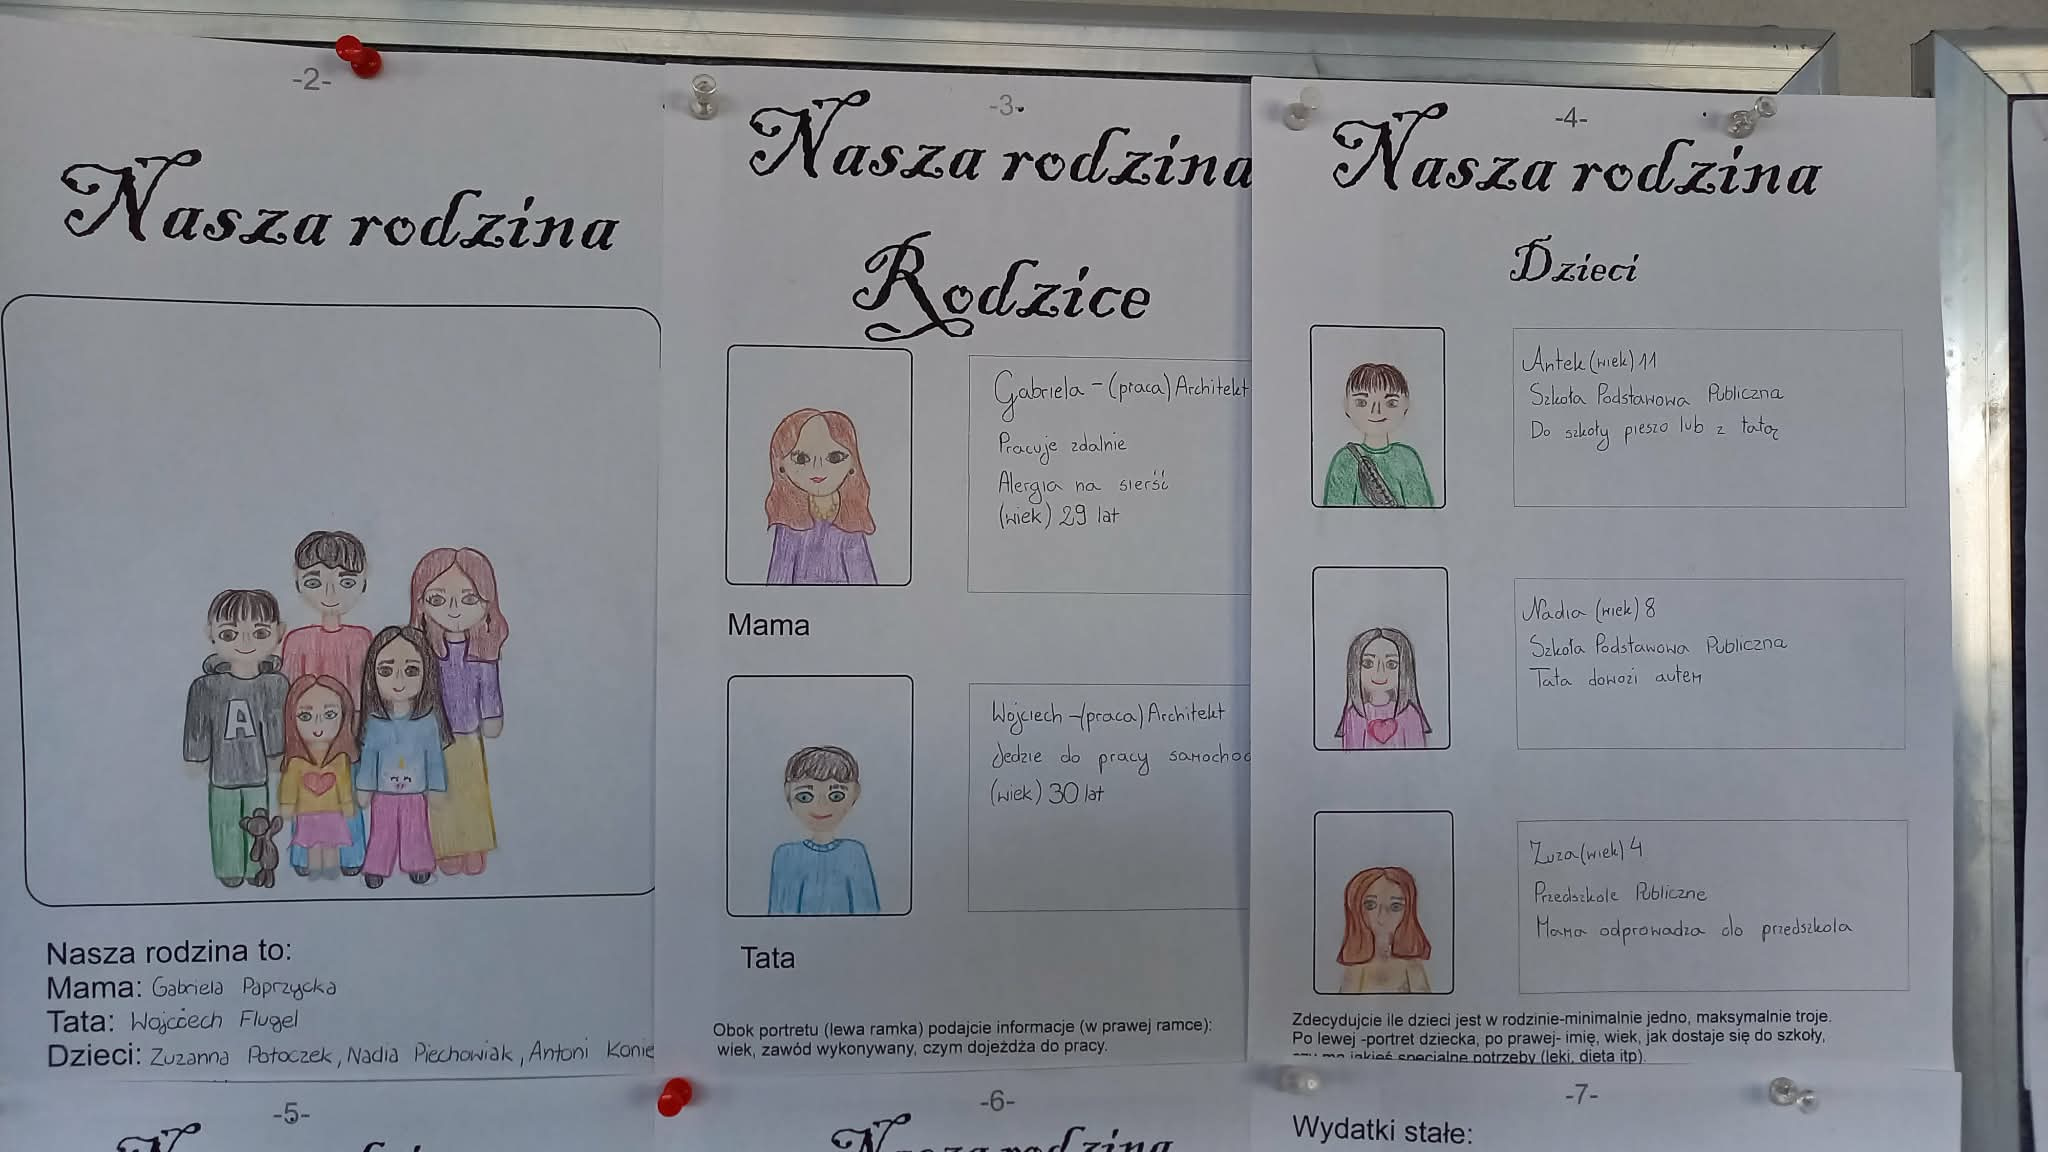 -2-
Nasza rodzina
A
Nasza rodzina to:
Mama: Gabriela Paprzycka
Tata: Wojciech Flugel
Dzieci: Zuzanna Potoczek, Nadia Piechowiak, Antoni Konie
-3-
Nasza rodzina
Rodzice
Gabriela - (praca) Architekt
Pracuje zdalnie
Alergia na sierść
(wiek) 29 lat
Mama
Wojciech -(praca) Architekt
Jedzie do pracy samochod
(wiek) 30 lat
Tata
Obok portretu (lewa ramka) podajcie informacje (w prawej ramce):
wiek, zawód wykonywany, czym dojeżdża do pracy.
-4-
Nasza rodzina
Dzieci
Antek (wiek) 11
Szkoła Podstawowa Publiczna
Do szkoły pieszo lub z tatą
Nadia (wiek) 8
Szkoła Podstawowa Publiczna
Tata dowozi autem
Zuza (wiek) 4
Przedszkole Publiczne
Mama odprowadza do przedszkola
Zdecydujcie ile dzieci jest w rodzinie-minimalnie jedno, maksymalnie troje.
Po lewej -portret dziecka, po prawej- imię, wiek, jak dostaje się do szkoły,
czy ma jakieś specjalne potrzeby (leki, dieta itp).
-5-
-6-
Nasza rodzina
-7-
Wydatki stałe: